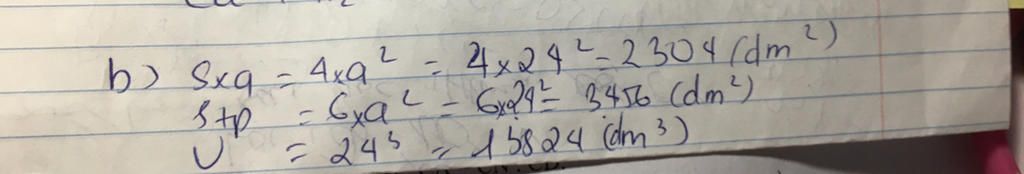 b) Sxq = 4xa² = 4x24² = 2304 (dm²)
Stp = 6xa² = 6x24² = 3456 (dm²)
V = 24³ = 13824 (dm³)